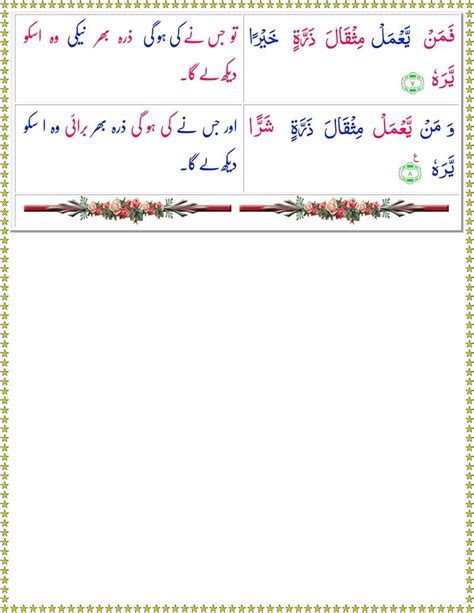 فَمَنۡ يَّعۡمَلۡ مِثۡقَالَ ذَرَّةٍ خَيۡرًا
يَّرَهٗ ؕ‏ ﴿۷﴾
تو جس نے کی ہوگی ذرہ بھر نیکی وہ اسکو
دیکھ لے گا۔
وَ مَنۡ يَّعۡمَلۡ مِثۡقَالَ ذَرَّةٍ شَرًّا
يَّرَهٗ ﴿۸﴾ ع
اور جس نے کی ہو گی ذرہ بھر برائی وہ ا سکو
دیکھ لے گا۔